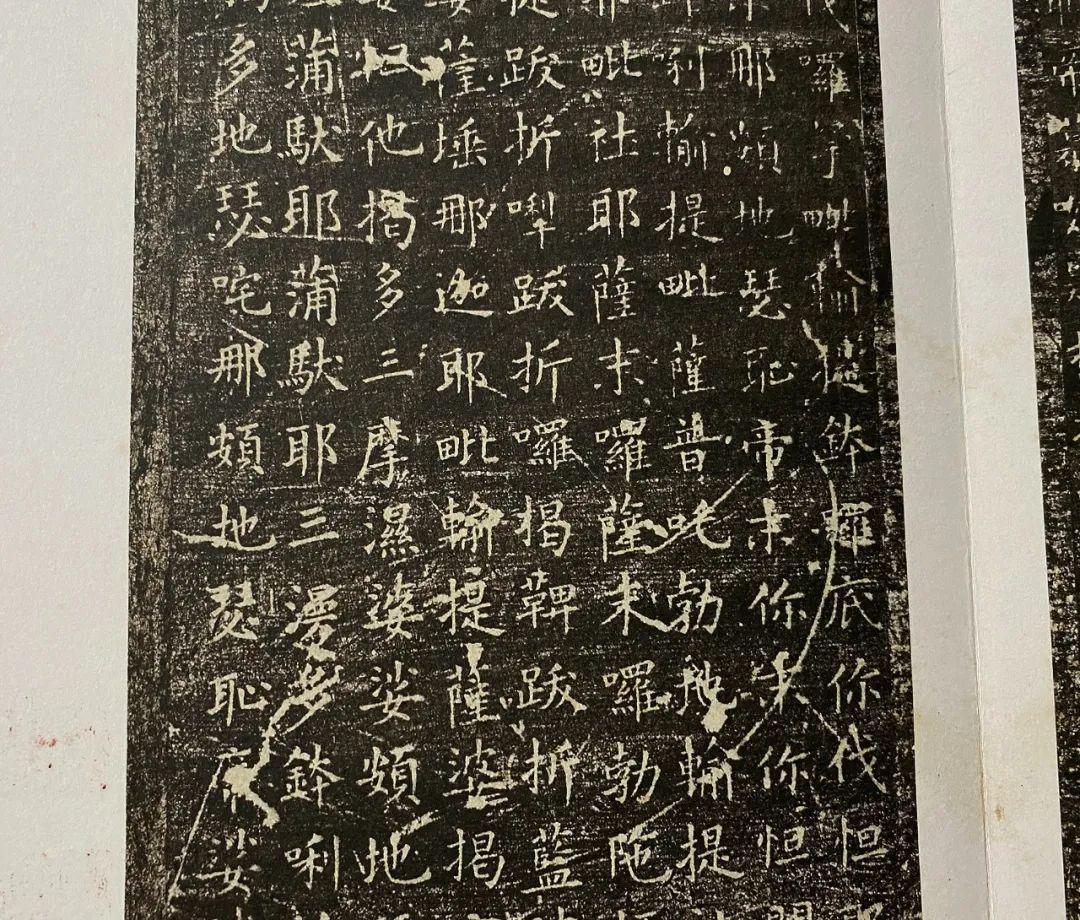 囉拏毗輸提鉢羅底你伐怛
那頞地瑟恥帝末你末你怛
唎輸提毗薩普吒勃地輸提
毗社耶薩末囉薩末囉勃陁
提跋折犁跋折囉揭鞞跋折藍
婆薩埵那迦耶毗輸提薩婆揭
怛他揭多三摩濕婆娑頞地
蒲馱耶蒲馱耶三漫多鉢唎
多地瑟咤那頞地瑟恥帝娑